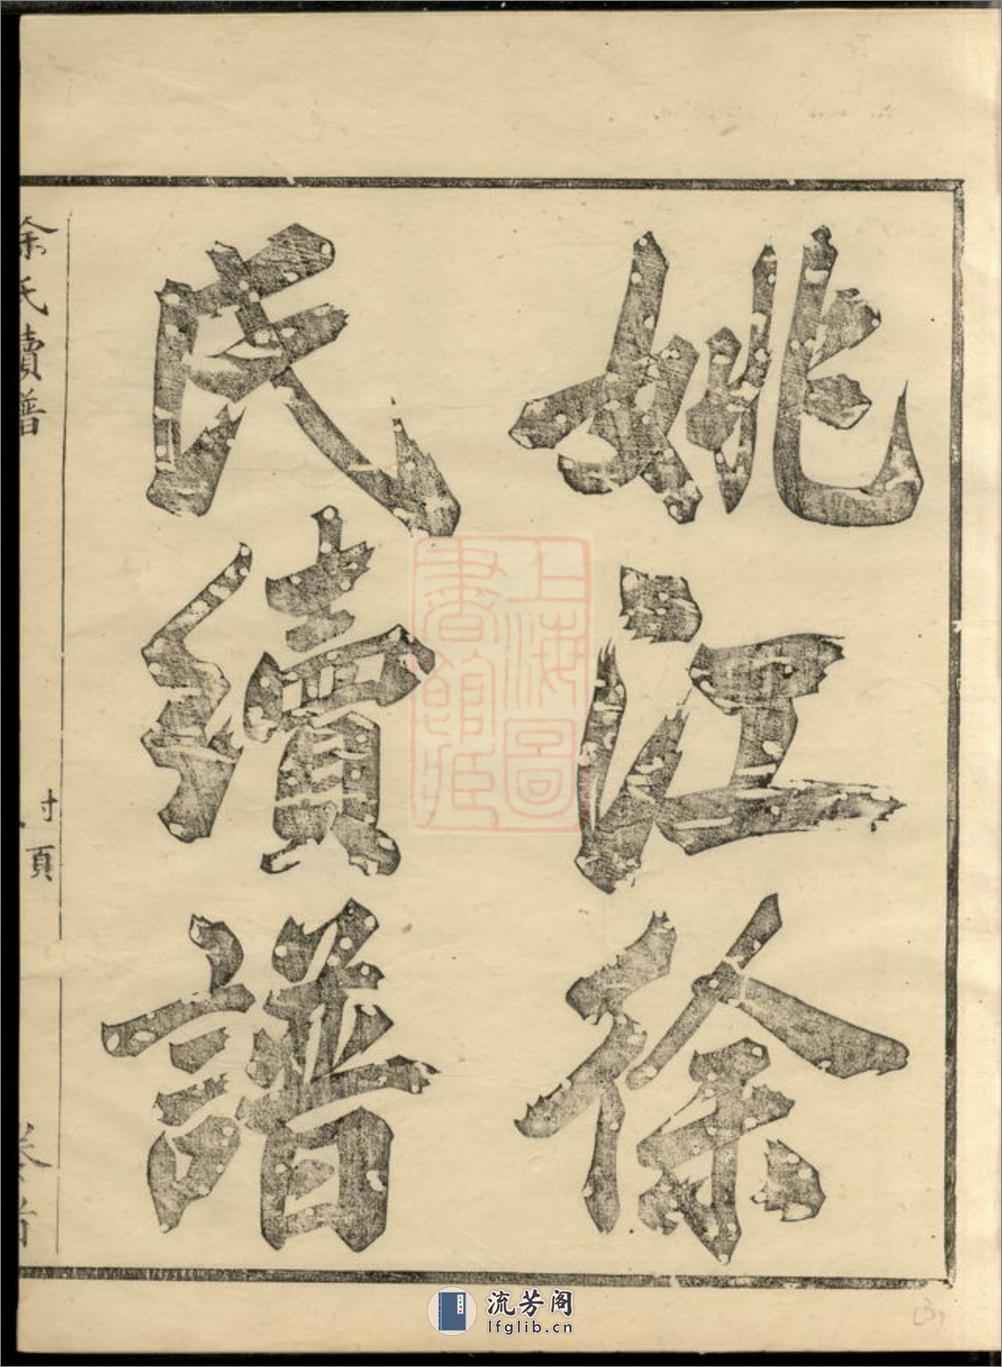 姚江徐
氏續譜
徐氏續譜
付頁
上海圖
書館藏
流芳阁
lfglib.cn